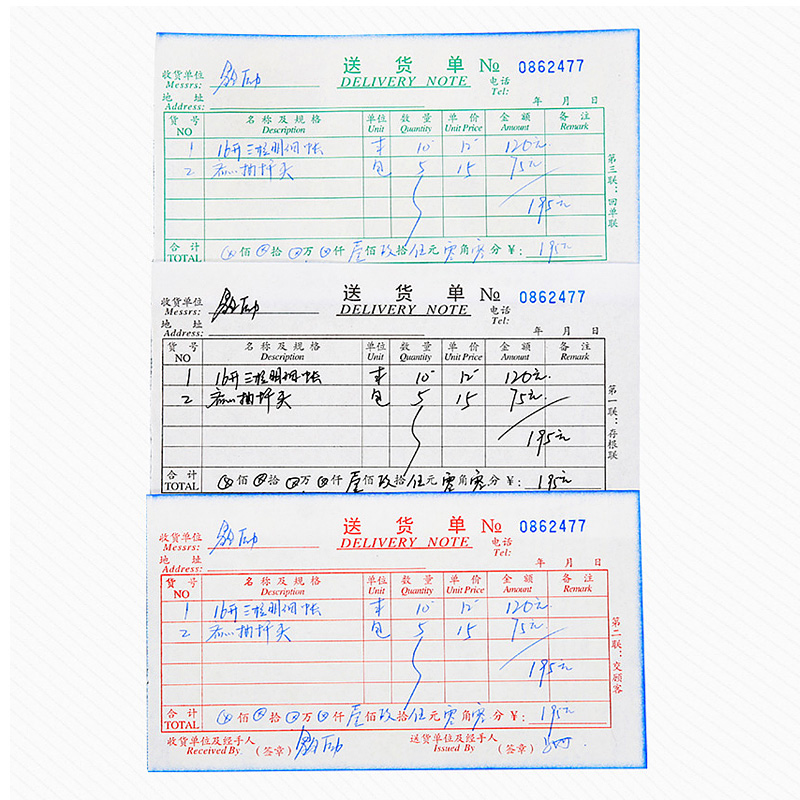 送 货 单 № 0862477
收货单位
Messrs: DELIVERY NOTE 电话
地 址 Tel:
Address: 年 月 日
货 号 名 称 及 规 格 单位 数 量 单 价 金 额 备 注
NO Description Unit Quantity Unit Price Amount Remark
1 16开三栏明细帐 本 10 12 120元
2 包 5 15 75元
195元
第三联：回单联
合 计 佰 拾 万 仟 壹佰玖拾伍元零角零分 ¥: 195元
TOTAL
送 货 单 № 0862477
收货单位
Messrs: DELIVERY NOTE 电话
地 址 Tel:
Address: 年 月 日
货 号 名 称 及 规 格 单位 数 量 单 价 金 额 备 注
NO Description Unit Quantity Unit Price Amount Remark
1 16开三栏明细帐 本 10 12 120元
2 包 5 15 75元
195元
第一联：存根联
合 计 佰 拾 万 仟 壹佰玖拾伍元零角零分 ¥: 195元
TOTAL
送 货 单 № 0862477
收货单位
Messrs: DELIVERY NOTE 电话
地 址 Tel:
Address: 年 月 日
货 号 名 称 及 规 格 单位 数 量 单 价 金 额 备 注
NO Description Unit Quantity Unit Price Amount Remark
1 16开三栏明细帐 本 10 12 120元
2 包 5 15 75元
195元
第二联：交顾客
合 计 佰 拾 万 仟 壹佰玖拾伍元零角零分 ¥: 195元
TOTAL
收货单位及经手人 送货单位及经手人
Received By (签章) Issued By (签章)